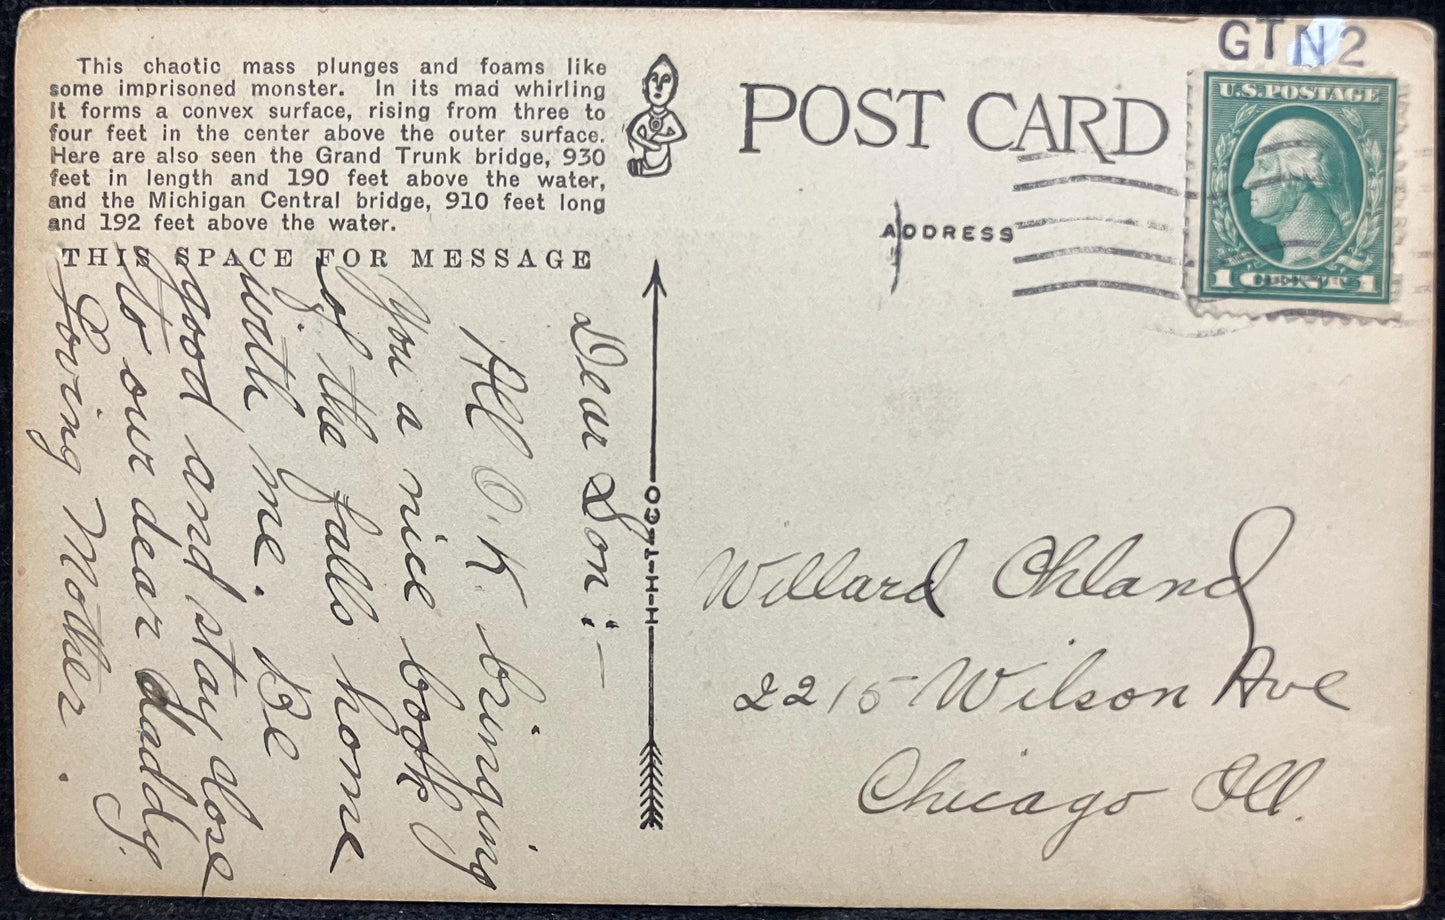 This chaotic mass plunges and foams like
some imprisoned monster. In its mad whirling
it forms a convex surface, rising from three to
four feet in the center above the outer surface.
Here are also seen the Grand Trunk bridge, 930
feet in length and 190 feet above the water,
and the Michigan Central bridge, 910 feet long
and 192 feet above the water.
THIS SPACE FOR MESSAGE
Dear Son:—
All O.K. bringing
you a nice book
of the falls home
with me. Be
good and stay close
to our dear daddy.
Loving Mother.
H-H-T-CO
POST CARD
ADDRESS
GTN2
U.S. POSTAGE
1 CENT 1
Willard Ohland
2215 Wilson Ave
Chicago Ill.